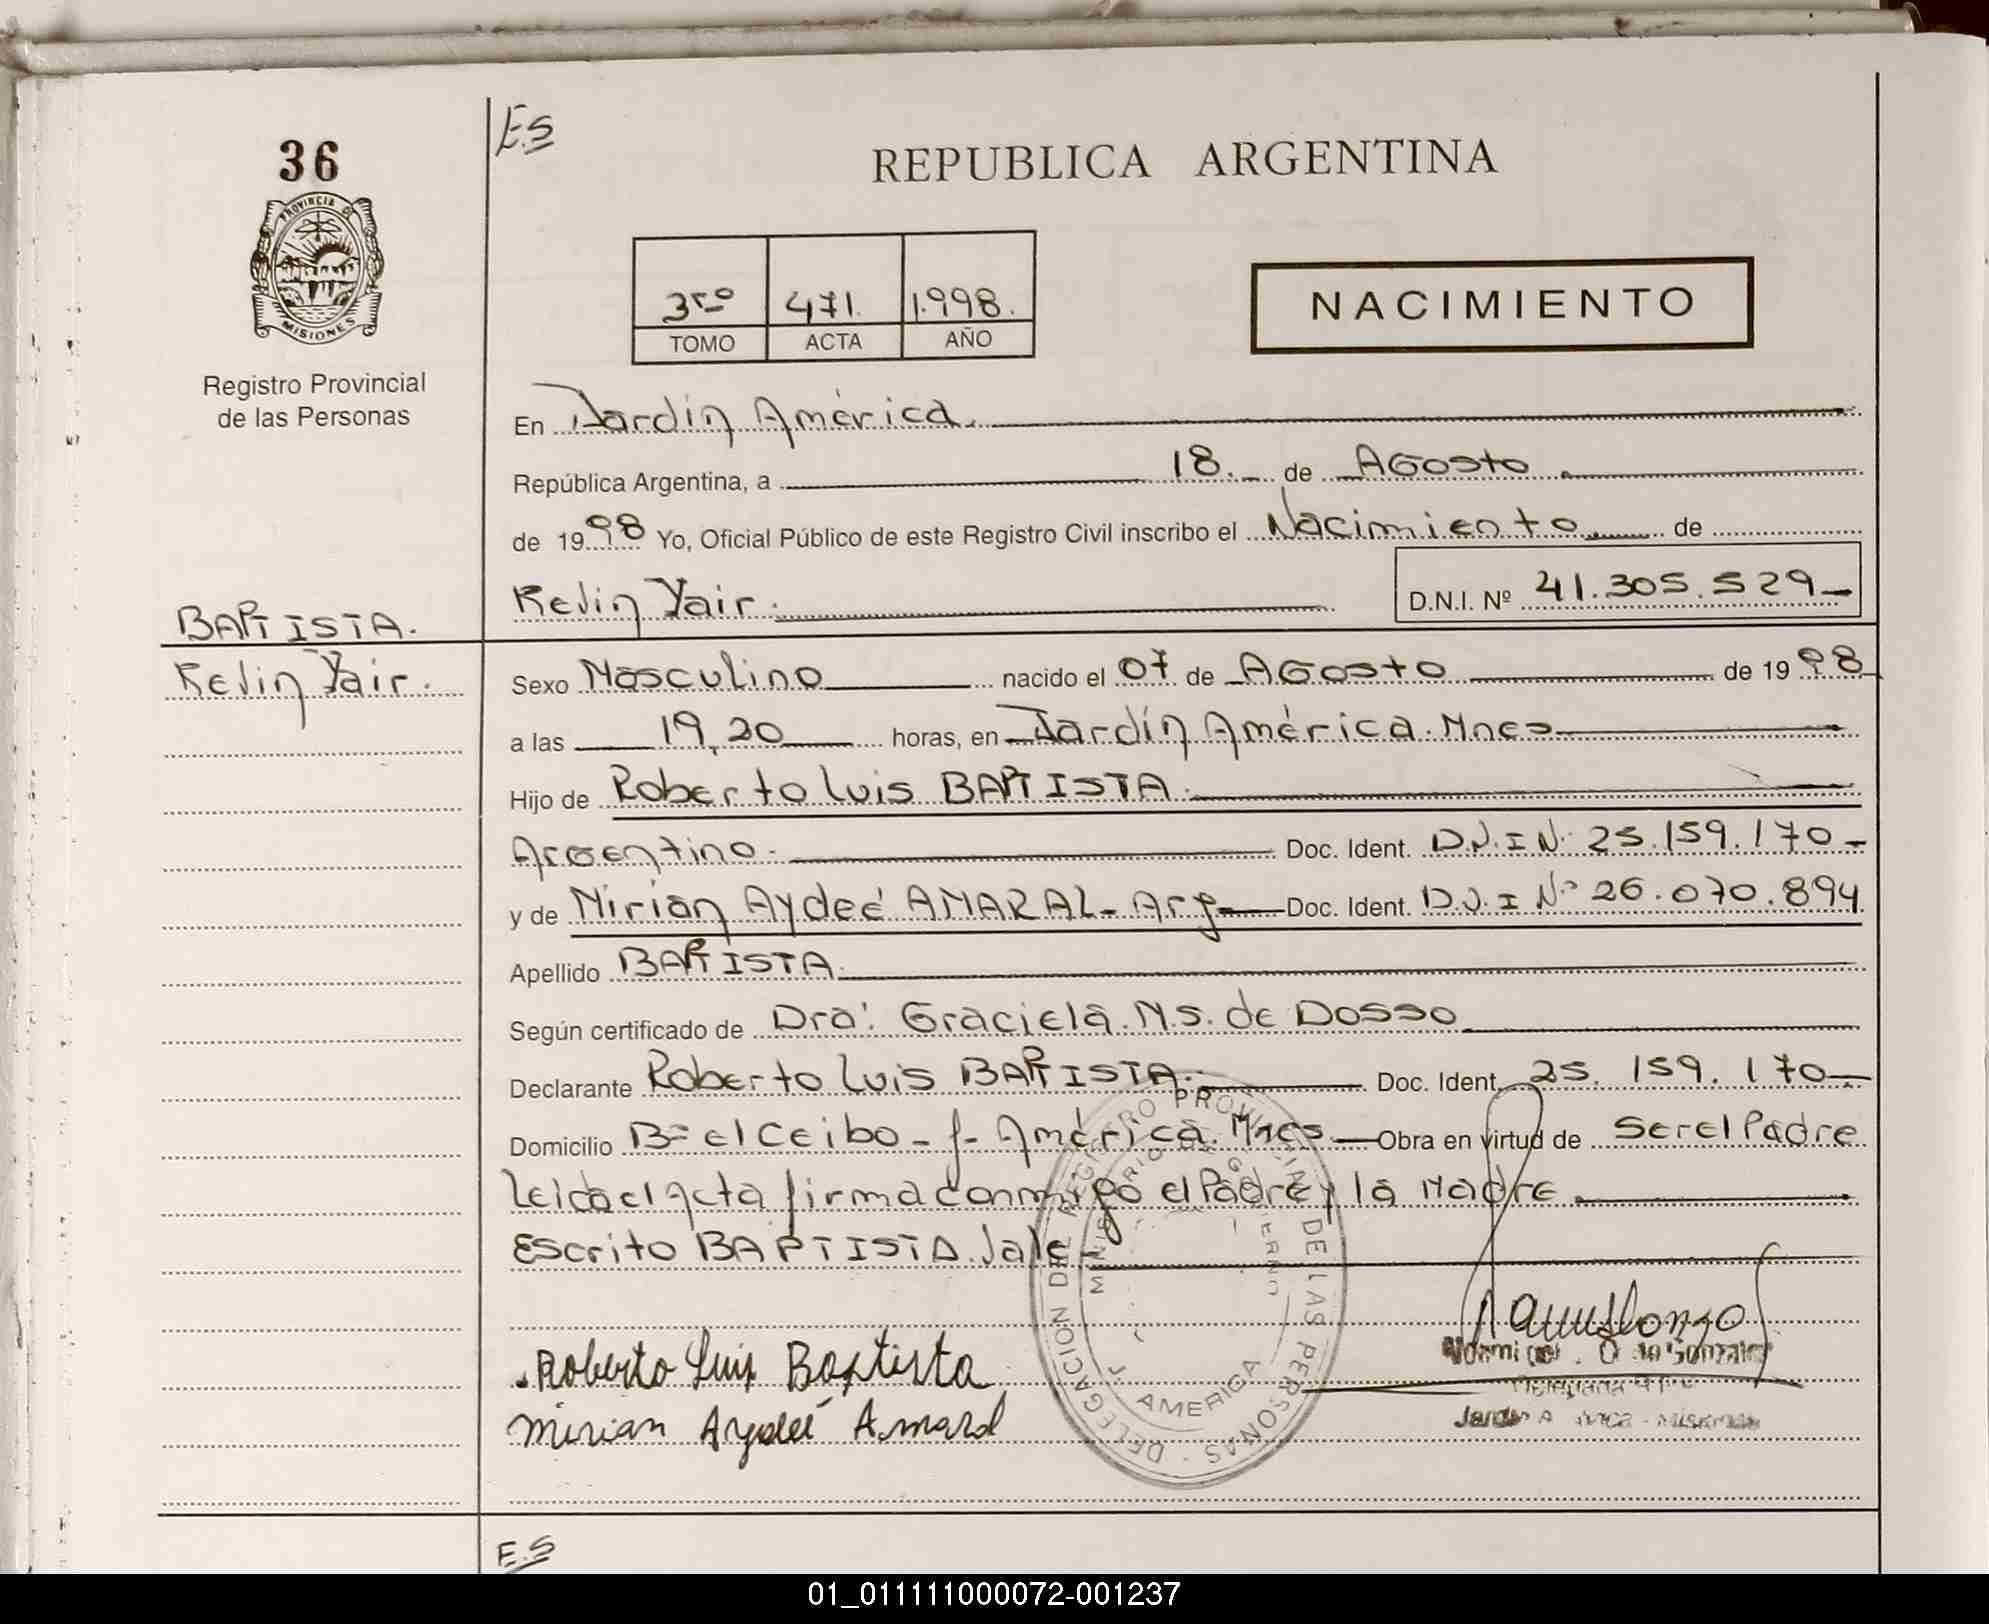 36
E.S
REPUBLICA ARGENTINA
PROVINCIA DE
MISIONES
Registro Provincial
de las Personas
3ro 471. 1.998.
TOMO ACTA AÑO
NACIMIENTO
En Jardín América.
República Argentina, a 18. de AGosto
de 1998 Yo, Oficial Público de este Registro Civil inscribo el Nacimiento de
Kevin Yair. D.N.I. Nº 41.305.529
BAPTISTA.
Kevin Yair.
Sexo Masculino nacido el 07 de AGosto de 1998
a las 19,20 horas, en Jardín América. Mnes
Hijo de Roberto Luis BAPTISTA.
Argentino. Doc. Ident. D.N.I Nº 25.159.170
y de Mirian Aydeé AMARAL - Arg Doc. Ident. D.N.I Nº 26.070.894
Apellido BAPTISTA.
Según certificado de Dra. Graciela. M.S. de Dosso
Declarante Roberto Luis BAPTISTA. Doc. Ident. 25.159.170
Domicilio Bº el Ceibo - J - América. Mnes. Obra en virtud de Ser el Padre
Leida el Acta firma conmigo el Padre y la Madre
Escrito BAPTISTA. Vale
Roberto Luis Baptista
Mirian Aydeé Amaral
DELEGACION DEL REGISTRO PROVINCIAL DE LAS PERSONAS
MINISTERIO DE GOBIERNO
J. AMERICA
E.S
01_011111000072-001237